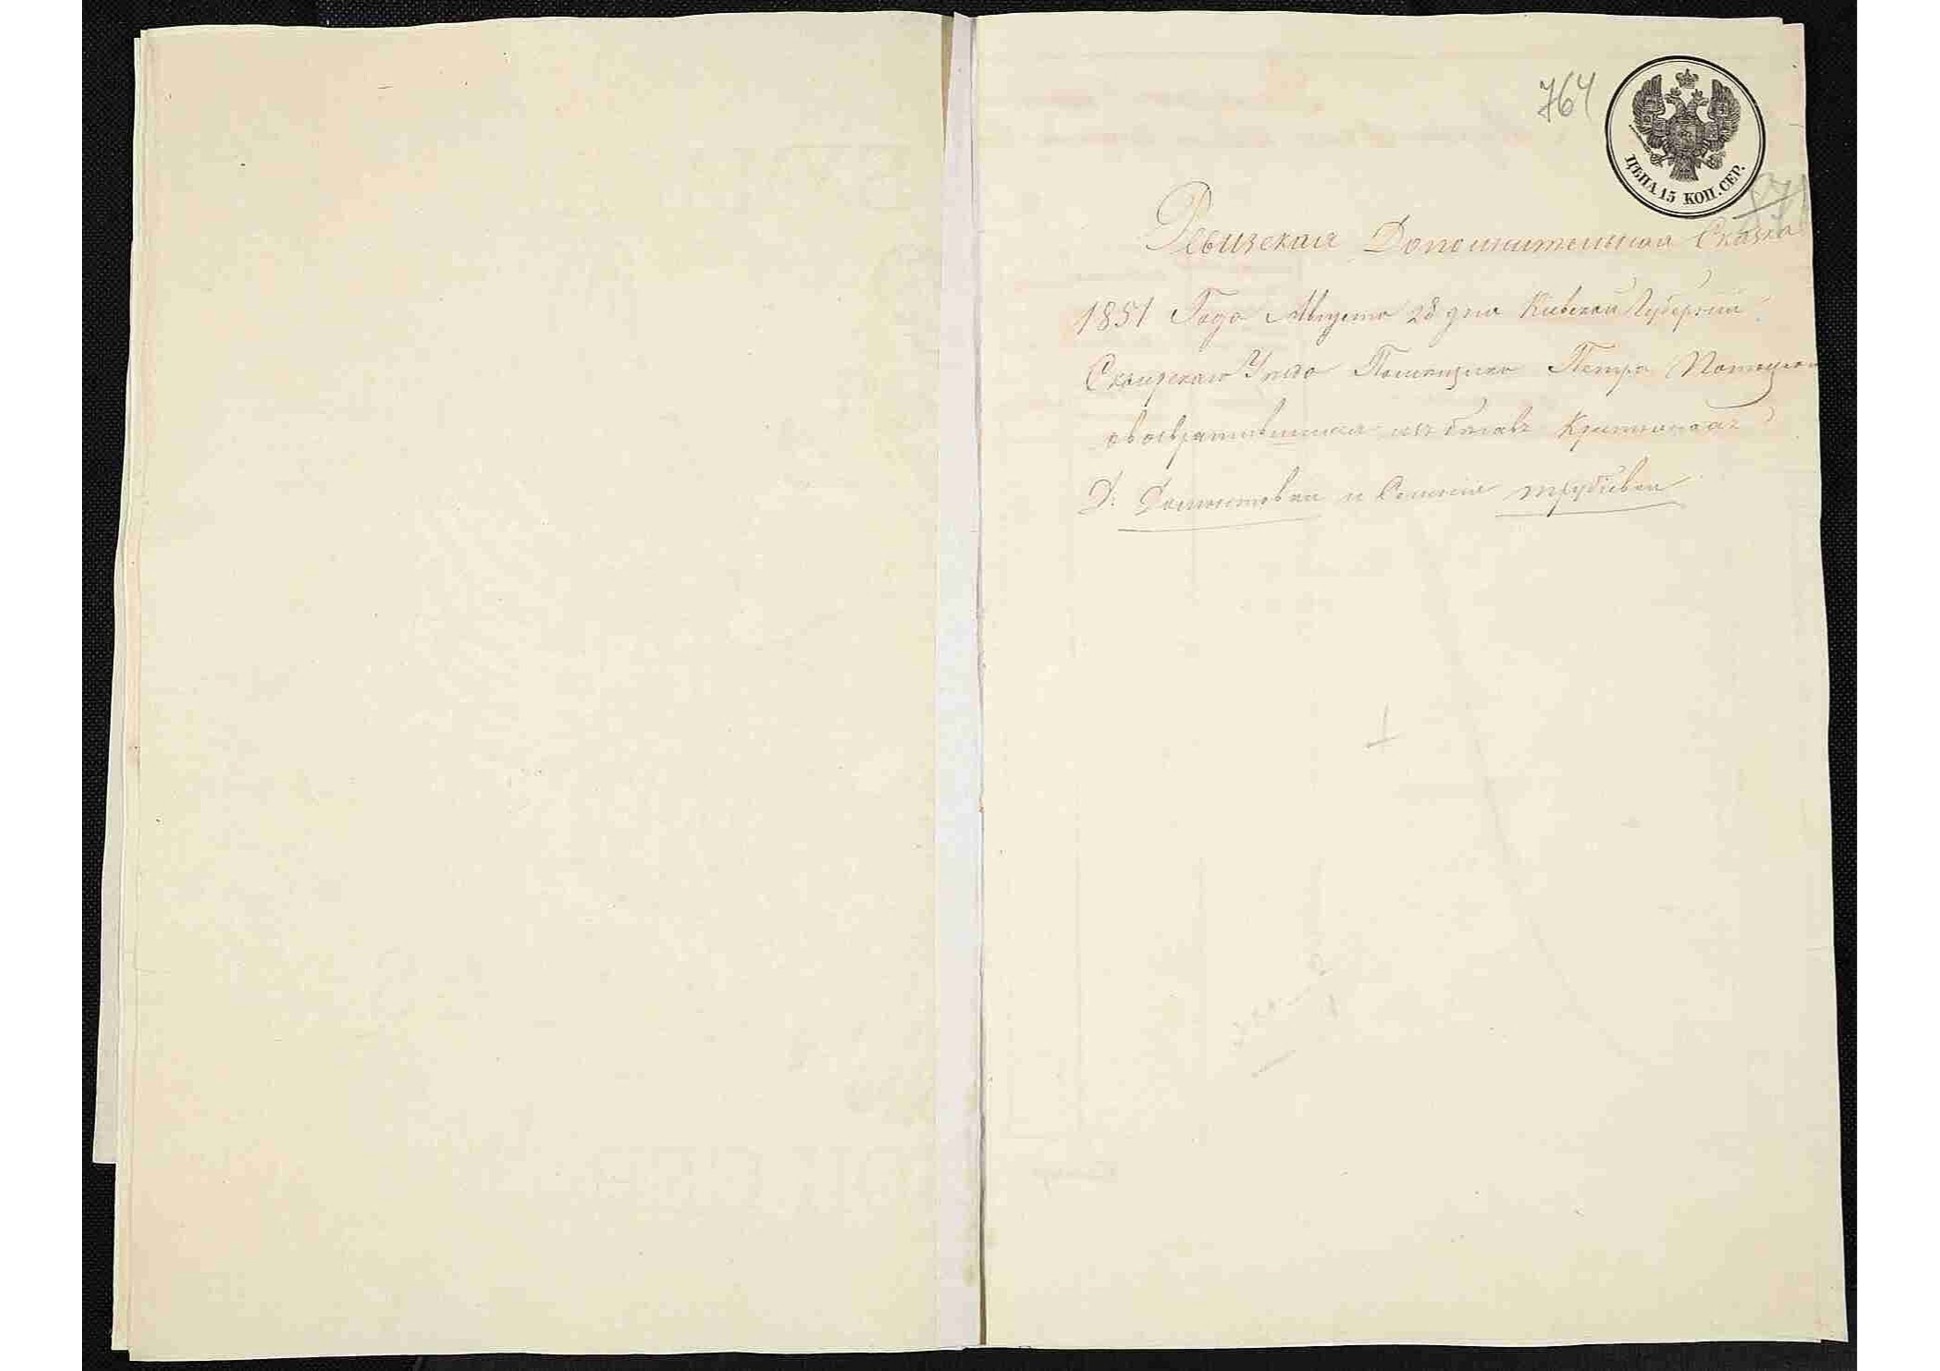 764
ЦѢНА 15 КОП. СЕР.
Ревизская Дополнительная Сказка
1851 Года Августа 28 дня Киевской Губернии
Сквирскаго Уезда Помещика Петра
овозвратившихся изъ бегов Крестьянахъ
Д: и Селения Трубіевки